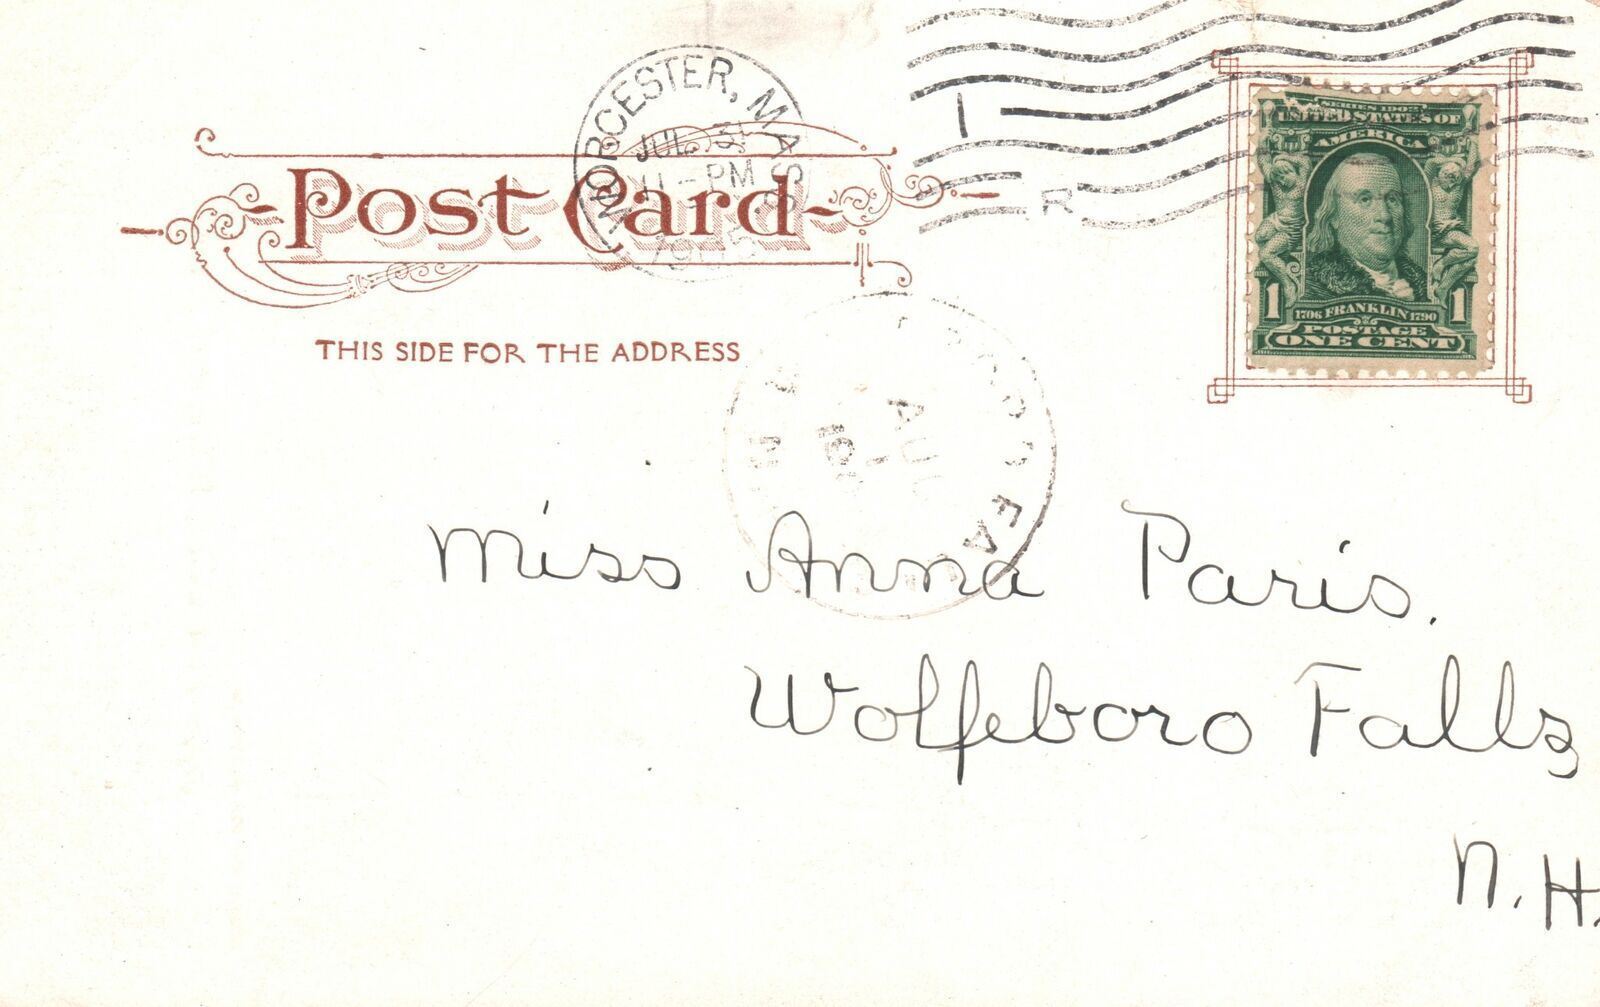 WORCESTER, MASS.
JUL 31
11-PM
1905
1
R
Post Card
THIS SIDE FOR THE ADDRESS
SERIES 1902
UNITED STATES OF
AMERICA
1 1706 FRANKLIN 1790 1
POSTAGE
ONE CENT
AUG
1
Miss Anna Paris.
Wolfeboro Falls
N.H.